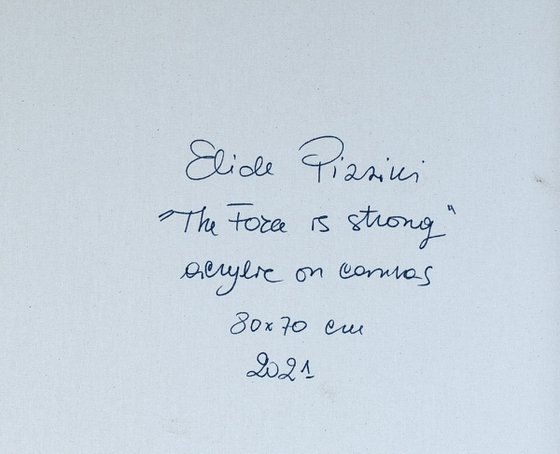 Elide Pizzini
"The Force is strong"
acrylic on canvas
80x70 cm
2021